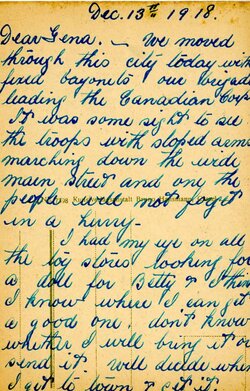 Dec. 13th 1918.
Dear Gena. — We moved
through this city today with
fixed bayonets our brigade
leading the Canadian Corps
It was some sight to see
the troops with sloped arms
marching down the wide
main street and one the
people will not forget
in a hurry.
I had my eye on all
the toy stores looking for
a doll for Betty & I think
I know where I can get
a good one. don't know
whether I will bring it or
send it. Will decide when
I get to town & get it.